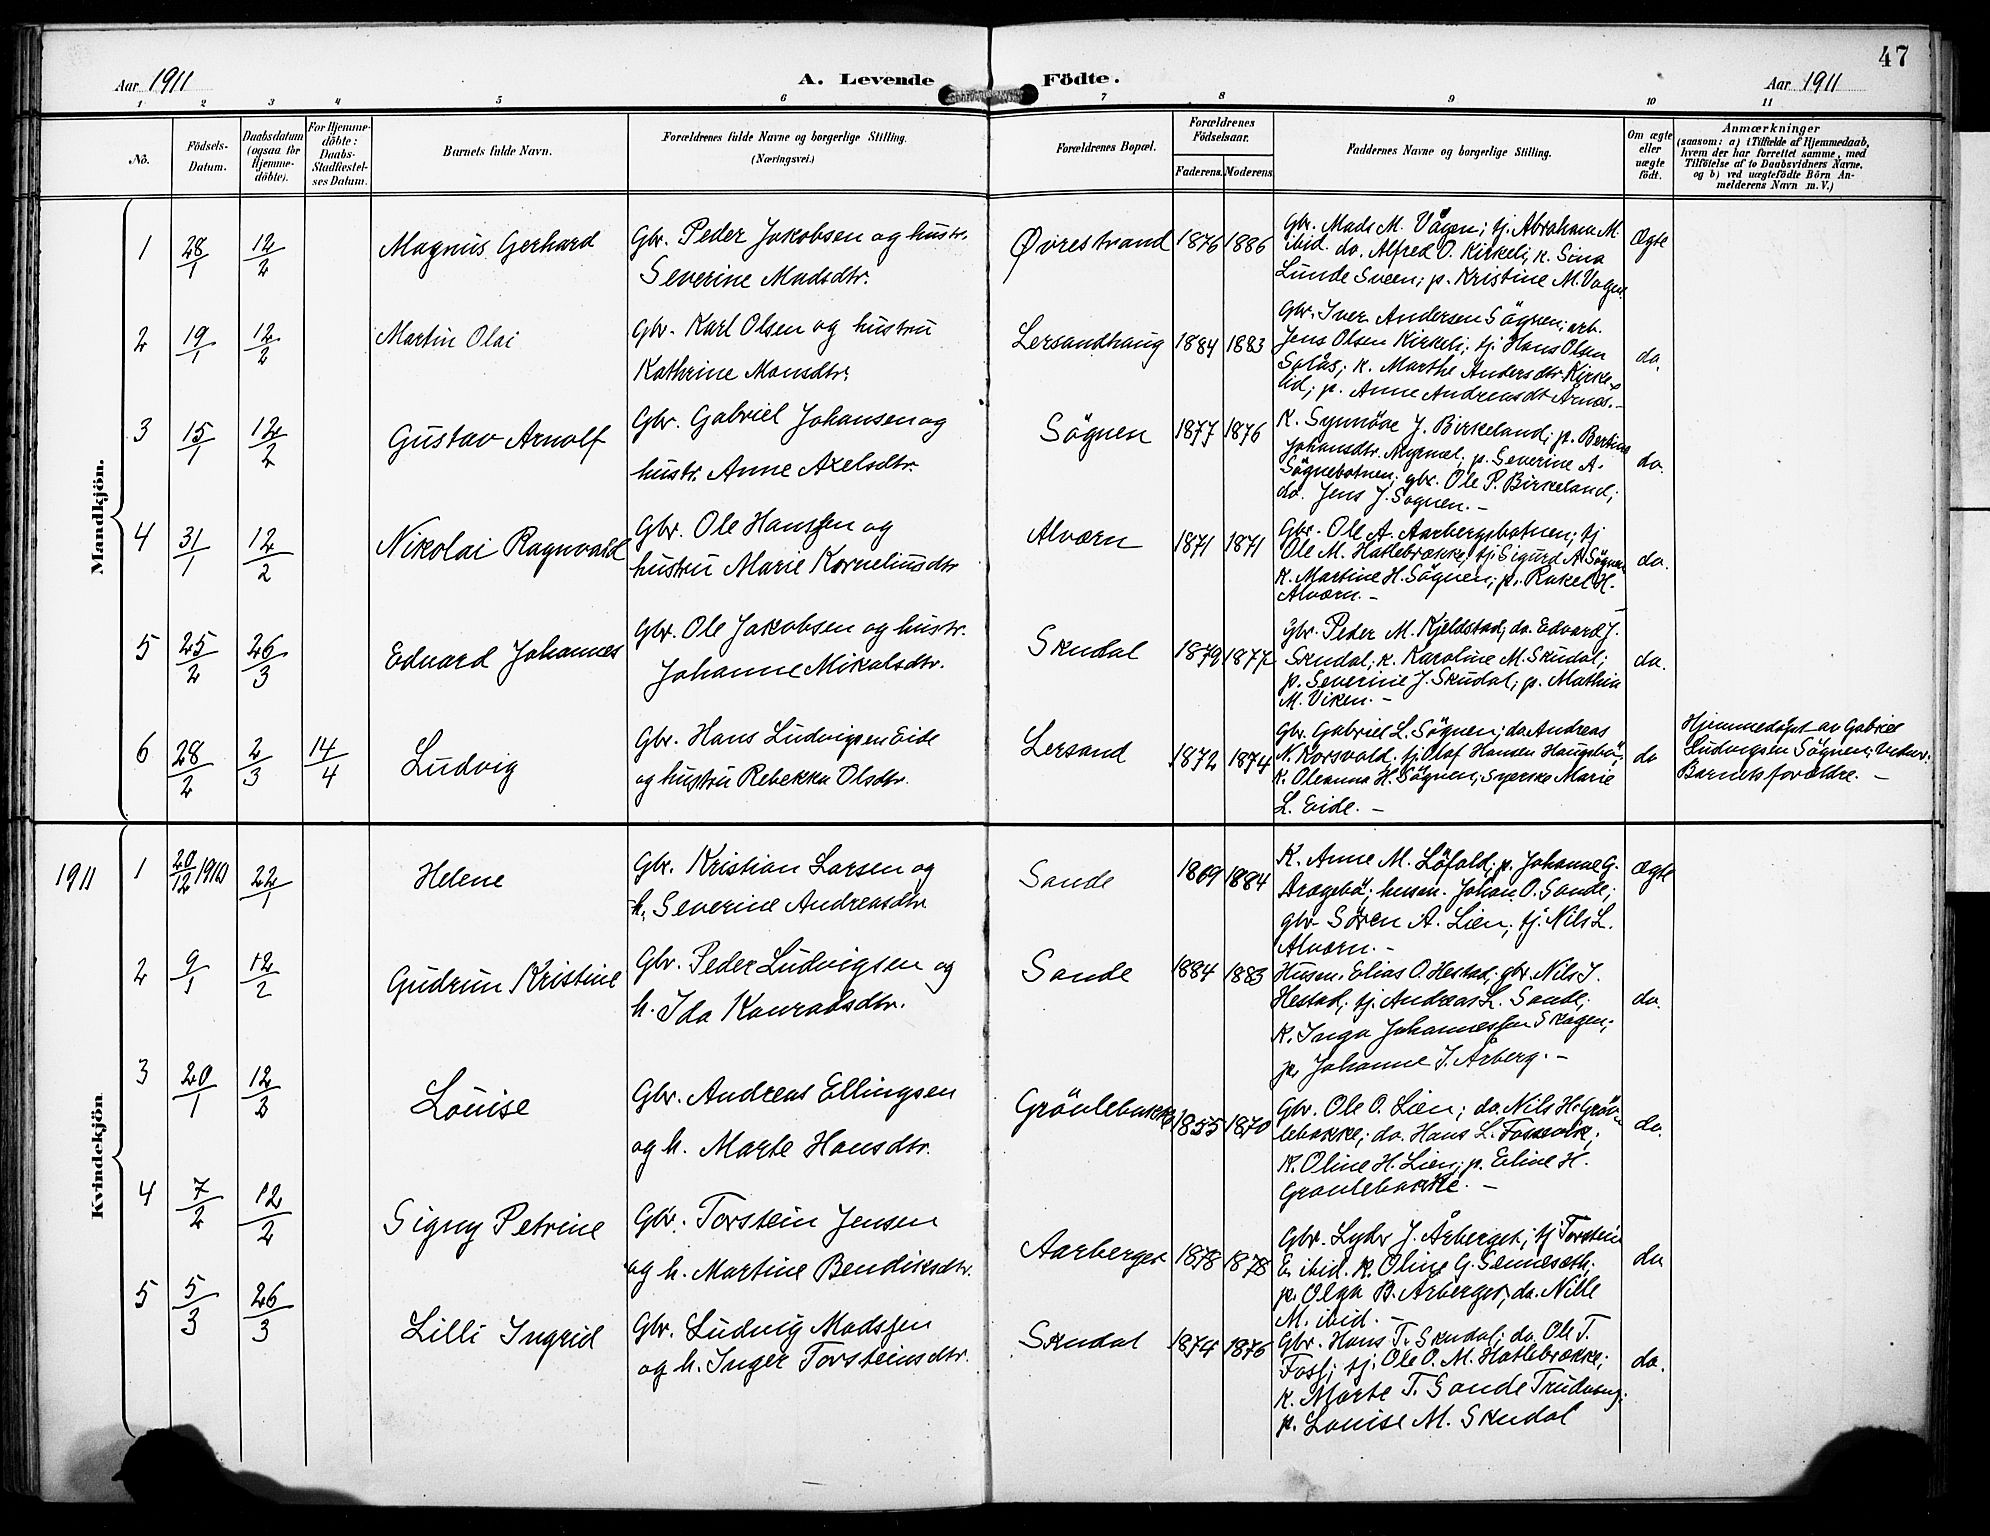 47
Aar 1911
A. Levende Födte.
Aar 1911
1 2 3 4 5 6 7 8 9 10 11
No.
Födsels-
Datum.
Daabsdatum
(ogsaa for
Hjemme-
döbte).
For Hjemme-
döbte:
Daabs-
Stadfæstel-
ses Datum.
Barnets fulde Navn.
Forældrenes fulde Navne og borgerlige Stilling.
(Næringsvei.)
Forældrenes Bopæl.
Forældrenes
Födselsaar.
Faderens. Moderens.
Faddernes Navne og borgerlige Stilling.
Om ægte
eller
uægte
födt.
Anmærkninger
(saasom: a) i Tilfælde af Hjemmedaab,
hvem der har forrettet samme, med
Tilföielse af to Daabsvidners Navne,
og b) ved uægtefödte Börn An-
melderens Navn m. V.)
Mandkjön.
1 28/1 12/2 Magnus Gerhard
Gbr. Peder Jakobsen og hustr.
Severine Madsdtr.
Øvrestrand 1876 1886
Gbr. Mads M. Vågen; tj. Abraham M.
ibid. do. Alfred O. Kirkeli; k. Sina
Lunde Sveen; p. Kristine M. Vagen.
Ægte
2 19/1 12/2 Martin Olai
Gbr. Karl Olsen og hustru
Kathrine Monsdtr.
Lersandhaug 1884 1883
Gbr. Iver Andersen Sögnen; arb.
Jens Olsen Kirkeli; tj. Hans Olsen
Solås; k. Marthe Andersdtr Kirke-
lid; p. Anne Andreasdt Årnes.-
do.
3 15/1 12/2 Gustav Arnolf
Gbr. Gabriel Johansen og
hustr. Anne Axelsdtr.
Sögnen 1877 1876
K. Synnöve J. Birkeland; p. Bertine
Johansdtr. Myrmel, p. Severine A.
Sögnebotnen; gbr. Ole P. Birkeland;
do. Jens J. Sognen.-
do.
4 31/1 12/2 Nikolai Ragnvald
Gbr. Ole Hanssen og
hustru Marie Korneliusdtr
Alværn 1871 1871
Gbr. Ole A. Aarbergsbotnen; tj
Ole M. Hatlebrække; tj. Sigurd A. Sögnen
K. Martine H. Sögnen; p. Rakel H.
Alværn.-
do.
5 25/2 26/3 Edvard Johannes
Gbr. Ole Jakobsen og hustr.
Johanne Mikalsdtr.
Skudal 1879 1877
gbr. Peder M. Kjeldstad; do. Edvard J.
Skudal; k. Karoline M. Skudal;
p. Severine J. Skudal; p. Mathia
M. Viken.-
do.
6 28/2 2/3 14/4 Ludvig
Gbr. Hans Ludvigsen Eide
og hustru Rebekka Olsdtr.
Lersand 1872 1874
Gbr. Gabriel L. Sögnen; do. Andreas
N. Korsvald. tj. Olaf Hansen Haugsbö;
K. Oleanna H. Sögnen; Syerske Marie
L. Eide.-
do
Hjemmedöpt av Gabriel
Ludvigsen Sögnen;
Barnets forældre.-
Kvindekjön
1911
1 20/12 1910 22/1 Helene
Gbr. Kristian Larsen og
h. Severine Andreasdtr
Sande 1869 1884
K. Anne M. Löfald; p. Johanne G.
Dragebö; husm. Johan O. Sande;
gbr. Sören A. Lien; tj. Nils L.
Alværn.-
Ægte
2 9/1 12/2 Gudrun Kristine
Gbr. Peder Ludvigsen og
h. Ida Konradsdtr.
Sande 1884 1883
Husm. Elias O. Hestad; gbr. Nils J.
Hestad; tj. Andreas L. Sande;
K. Inga Johannessen Skagen;
p. Johanne J. Årberg.-
do.
3 20/1 12/3 Louise
Gbr. Andreas Ellingsen
og h. Marte Hansdtr.
Grönlebakke 1855 1870
Gbr. Ole O. Lien; do. Nils H. Grön-
lebakke; do. Hans L. Fossevik;
K. Oline H. Lien; p. Eline H.
Grönlebakke.-
do.
4 7/2 12/2 Signy Petrine
Gbr. Torstein Jensen
og h. Martine Bendiksdtr.
Aarberget 1878 1878
Gbr. Lyder J. Årberget; tj Torstein
E. ibid. K. Oline G. Sennesæth;
p. Olga B. Årberget; do. Nille
M. ibid.-
do
5 5/3 26/3 Lilli Ingrid
Gbr. Ludvig Madssen
og h. Inger Torsteinsdtr.
Skudal 1874 1876
Gbr. Hans T. Skudal; do. Ole T.
Foss; tj. Ole O. M. Hatlebrække;
K. Marte T. Sande
p. Louise M. Skudal
do.